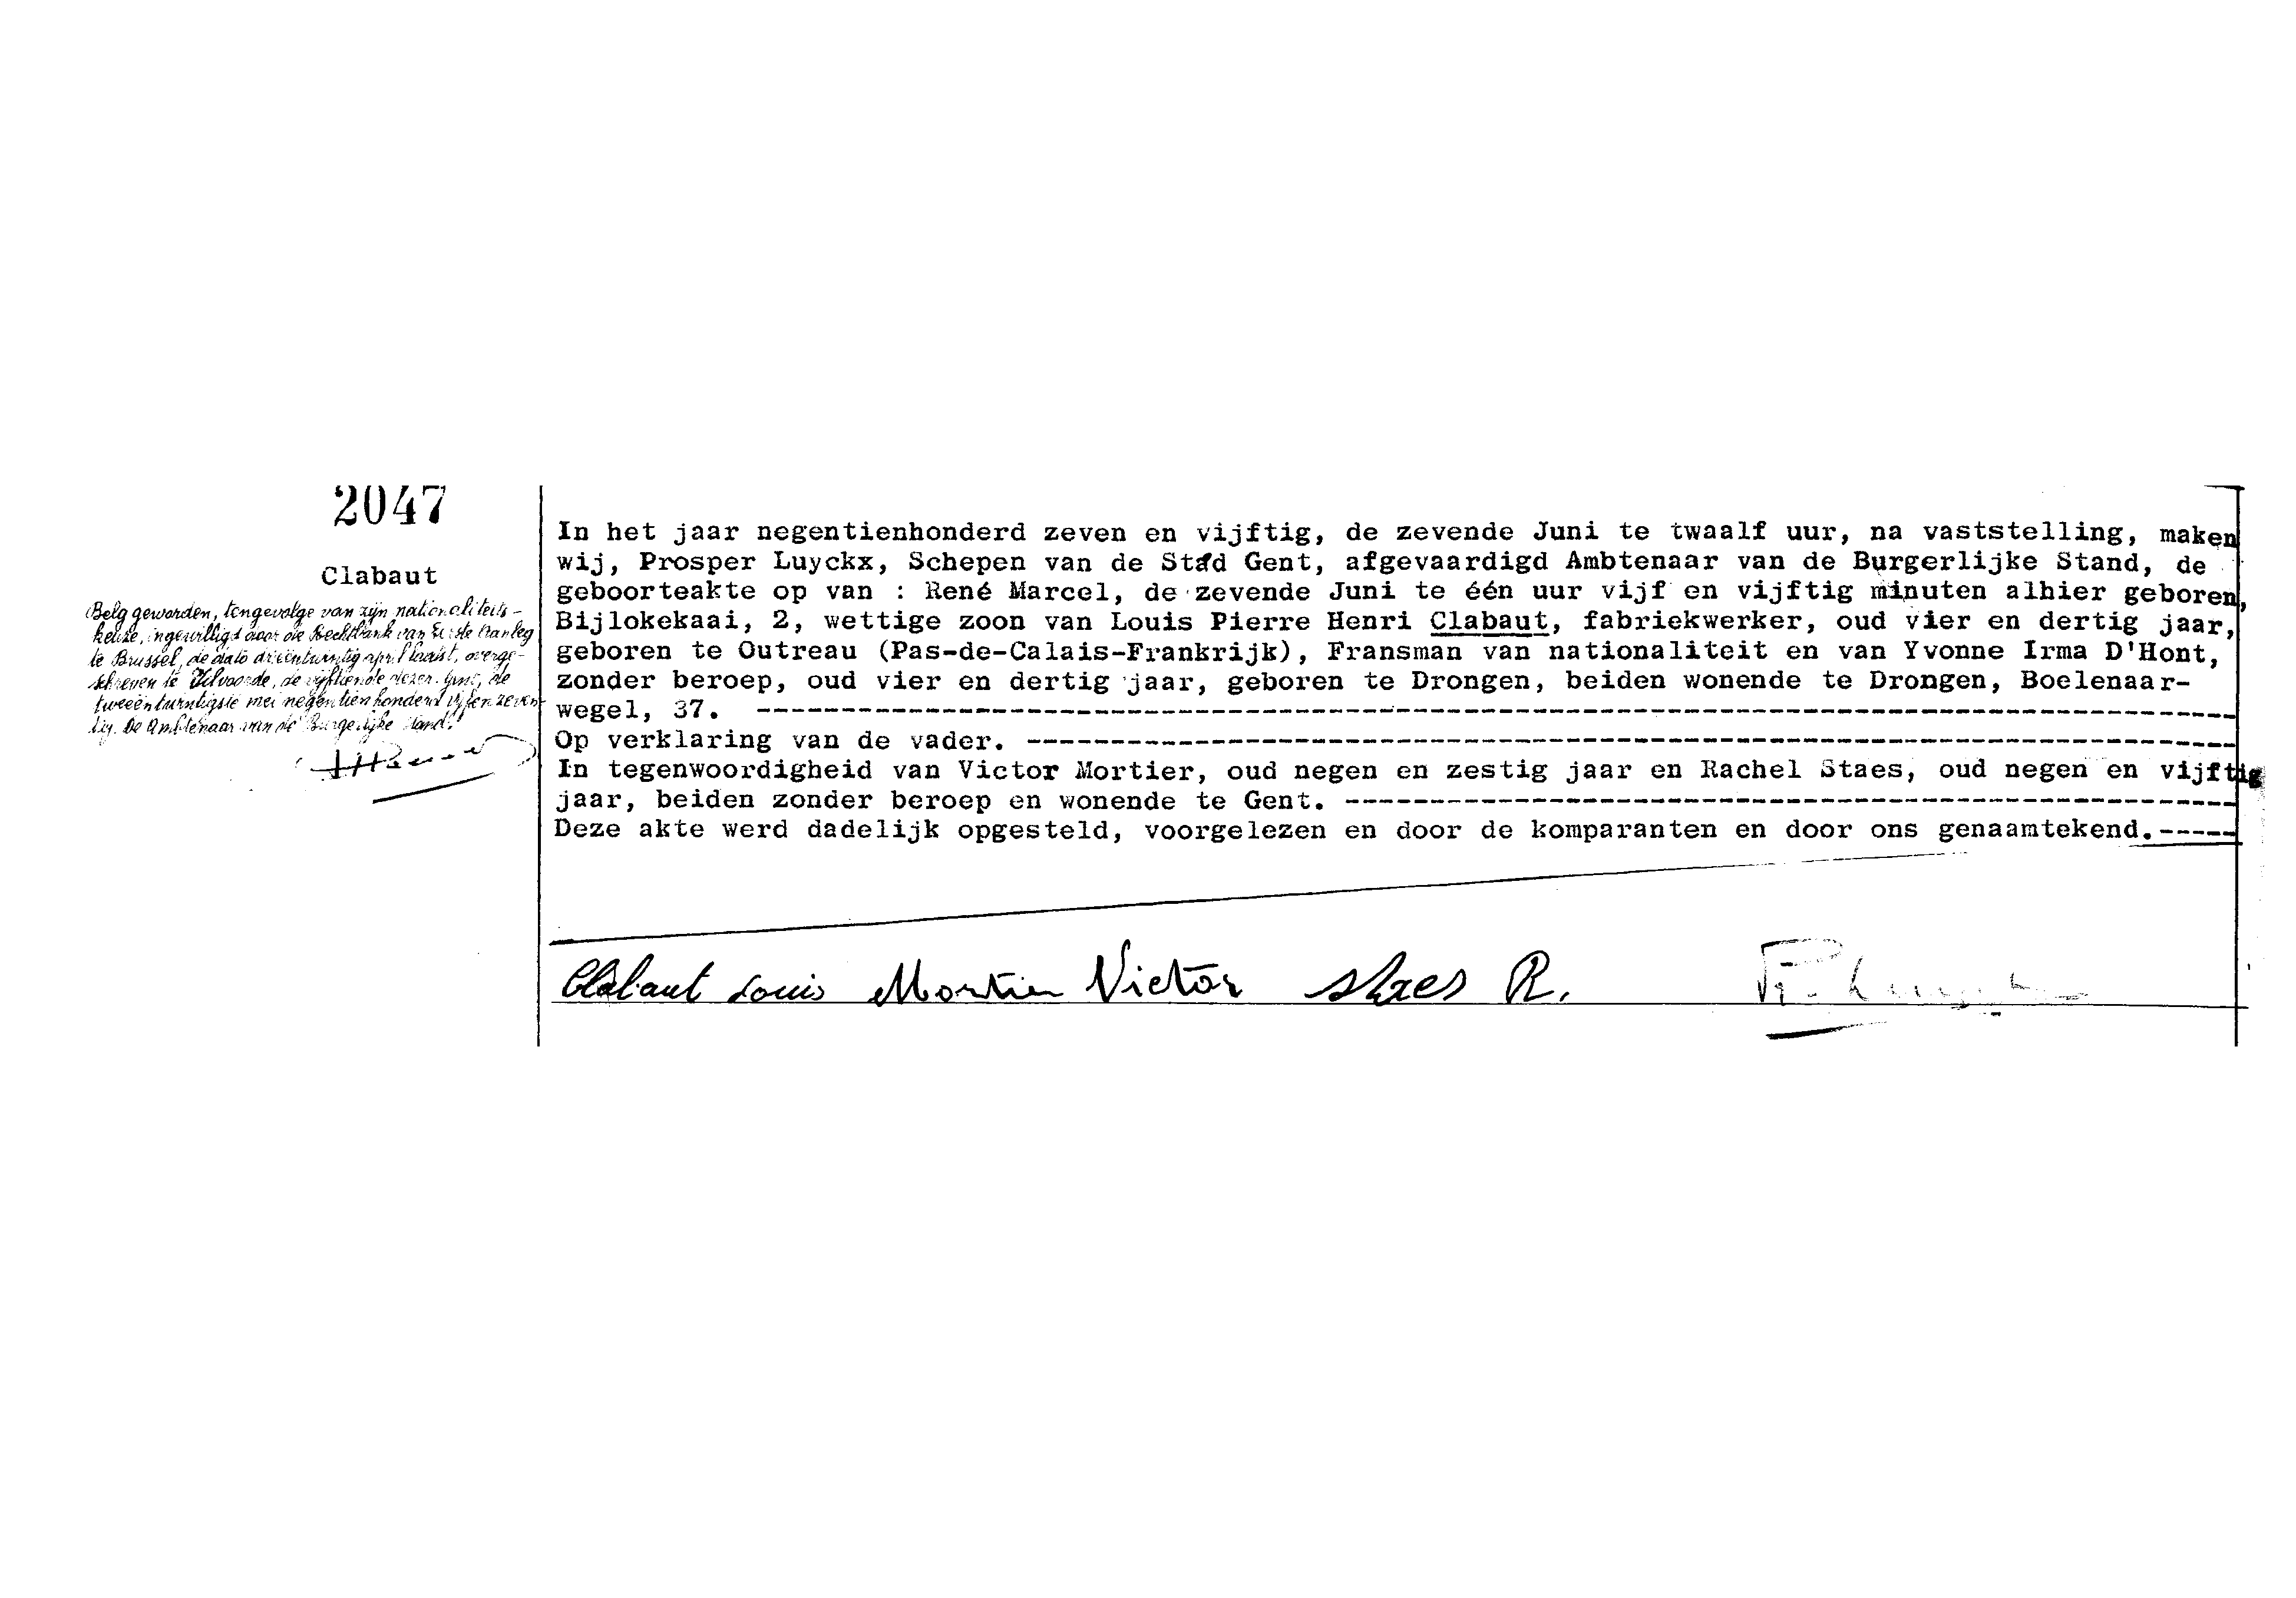 2047
Clabaut
Belg geworden, tengevolge van zijn nationaliteits-
keuze, ingewilligd door de Rechtbank van Eerste Aanleg
te Brussel, de dato drieëntwintig april laatst, overge-
schreven te Vilvoorde, de vijftiende dezer. Gent, de
tweeëntwintigste mei negentienhonderd vijfenzeven-
tig. De Ambtenaar van de Burgerlijke Stand.
In het jaar negentienhonderd zeven en vijftig, de zevende Juni te twaalf uur, na vaststelling, maken
wij, Prosper Luyckx, Schepen van de Stad Gent, afgevaardigd Ambtenaar van de Burgerlijke Stand, de
geboorteakte op van : René Marcel, de zevende Juni te één uur vijf en vijftig minuten alhier geboren,
Bijlokekaai, 2, wettige zoon van Louis Pierre Henri Clabaut, fabriekwerker, oud vier en dertig jaar,
geboren te Outreau (Pas-de-Calais-Frankrijk), Fransman van nationaliteit en van Yvonne Irma D'Hont,
zonder beroep, oud vier en dertig jaar, geboren te Drongen, beiden wonende te Drongen, Boelenaar-
wegel, 37. ----------
Op verklaring van de vader. ----------
In tegenwoordigheid van Victor Mortier, oud negen en zestig jaar en Rachel Staes, oud negen en vijftig
jaar, beiden zonder beroep en wonende te Gent. ----------
Deze akte werd dadelijk opgesteld, voorgelezen en door de komparanten en door ons genaamtekend.-----
Clabaut Louis Mortier Victor Staes R.